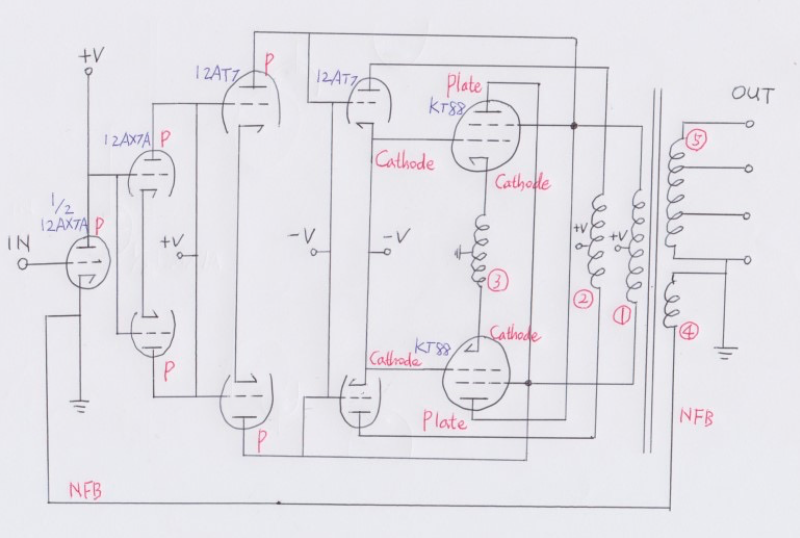 +V
12AT7
P
12AT7
Plate
KT88
OUT
12AX7A
P
⑤
1/2
12AX7A
P
Cathode
Cathode
IN
+V
-V
-V
+V
+V
③
②
①
④
KT88
Cathode
Cathode
P
Plate
P
NFB
NFB